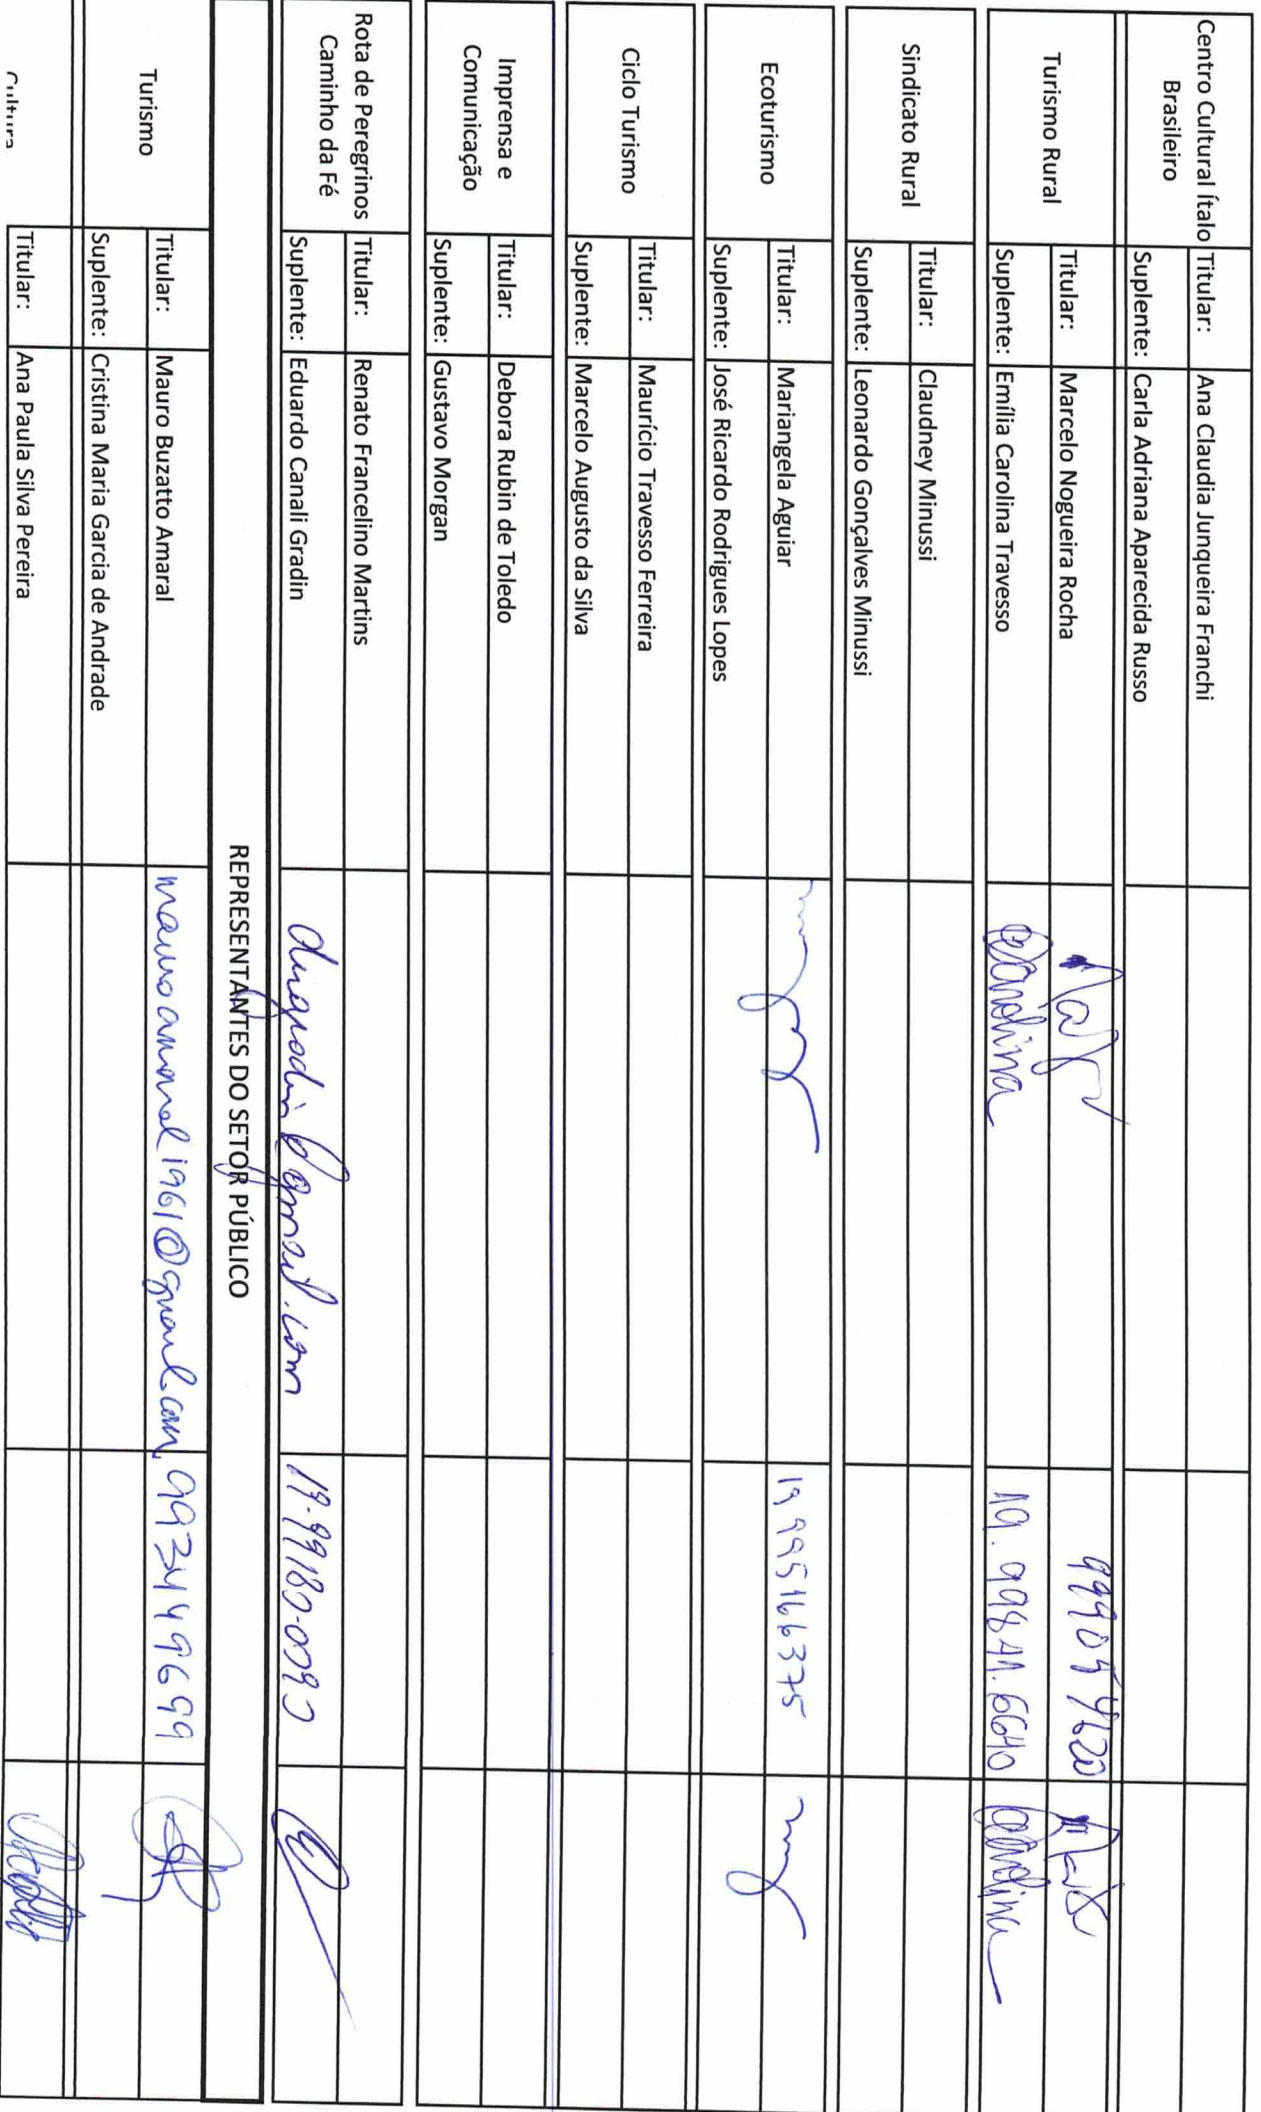 Centro Cultural Ítalo Brasileiro Titular: Ana Claudia Junqueira Franchi
Suplente: Carla Adriana Aparecida Russo
Turismo Rural Titular: Marcelo Nogueira Rocha 999094620
Suplente: Emília Carolina Travesso Carolina 19. 99841.6640 Carolina
Sindicato Rural Titular: Claudney Minussi
Suplente: Leonardo Gonçalves Minussi
Ecoturismo Titular: Mariangela Aguiar 19 995166375
Suplente: José Ricardo Rodrigues Lopes
Ciclo Turismo Titular: Maurício Travesso Ferreira
Suplente: Marcelo Augusto da Silva
Imprensa e Comunicação Titular: Debora Rubin de Toledo
Suplente: Gustavo Morgan
Rota de Peregrinos Caminho da Fé Titular: Renato Francelino Martins
Suplente: Eduardo Canali Gradin 19.99180-0790
REPRESENTANTES DO SETOR PÚBLICO
Turismo Titular: Mauro Buzatto Amaral mauroamaral1961@gmail.com 993449699
Suplente: Cristina Maria Garcia de Andrade
Cultura Titular: Ana Paula Silva Pereira